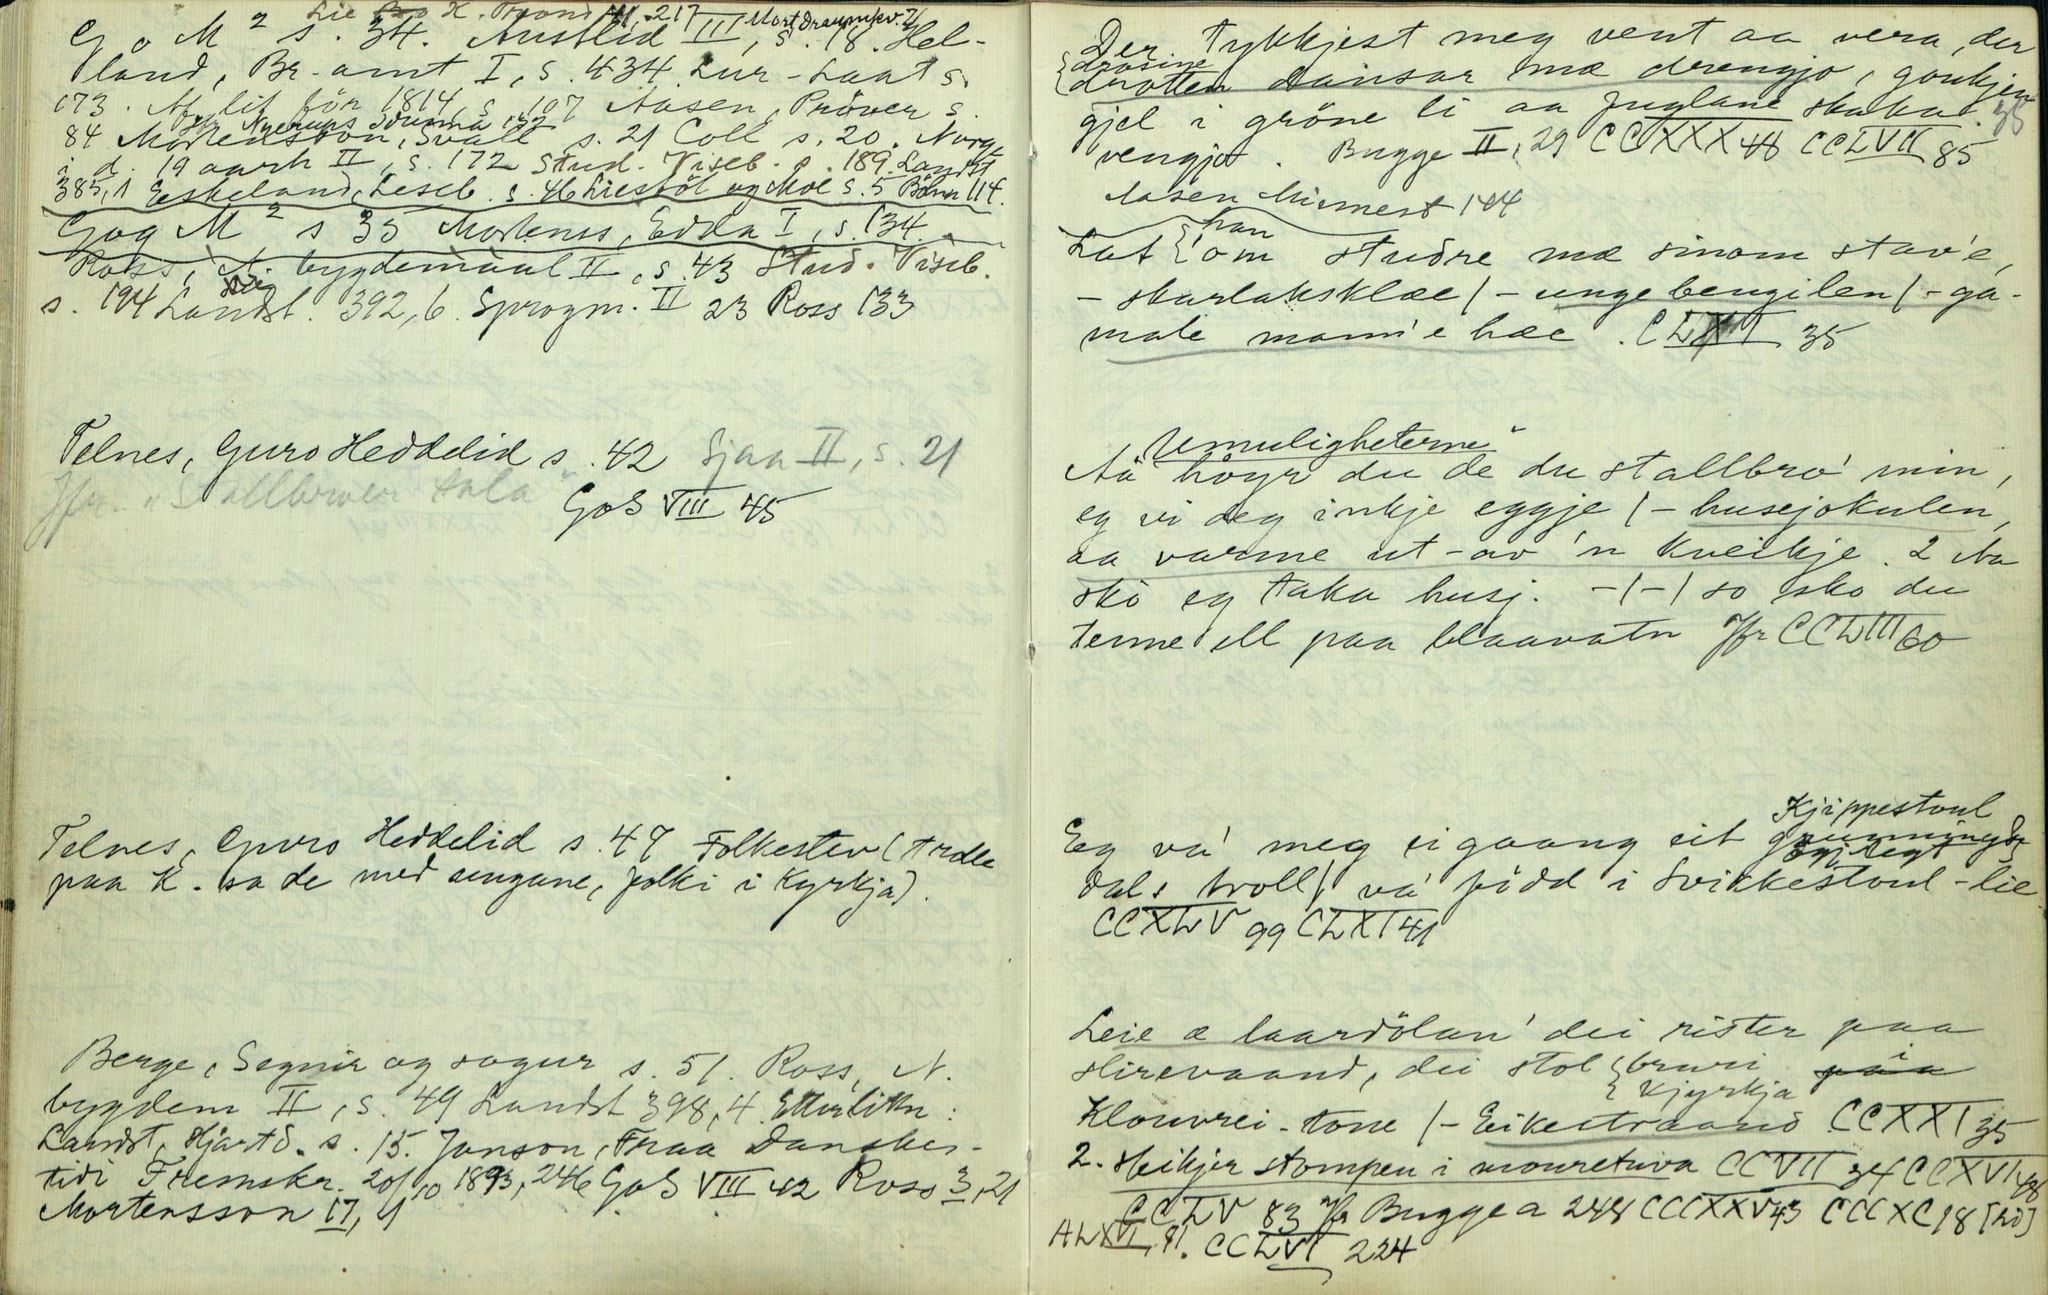 Lie H. Brand 41, 217 Mort draumkv. 71
G o M 2 s. 34. Austlid III, s. 18. Hel-
land, Br. amt I, s. 434 Lur-Laat s.
173. N. lit för 1814, s. 107 Aasen, Pröver s.
84 Mortensson, Svall s. 21 Coll s. 20. Norge
i d. 19 aarh II, s. 172 Stud. Viseb. s. 189. Landst
385, 1 Eskeland, Leseb. s. 46 Liestöl og Moe s. 5 Böhn 114.
G o g M 2 s 35 Mortenss, Edda I, s. 134.
Ross, N. bygdemaal II, s. 43 Stud. Viseb.
s. 194 Landst. 392, 6. Sprogm. II 23 Ross 133
Telnes, Guro Heddelid s. 42 Sjaa II, s. 21
Jfr. "Stallbroer tala"
GoS VIII 45
Telnes, Guro Heddelid s. 47 Folkestev (Ardle
paa K. sa de med augune, folki i Kyrkja).
Berge, Segnir og sogur s. 51. Ross, N.
bygdem II, s. 49 Landst 398, 4. Etterlikn:
Landst, Hjartd. s. 15. Janson, Fraa Dansker-
tidi Fremskr. 20/10 1893, 246 GoS VIII 42 Ross 3, 21
Mortensson 17, 4
Der tykkjest meg vent aa vera, der
drosine
drotten dansar mæ drengjo, gaukjen
gjel i gröne li aa fuglane skaka 35
vengjo. Bugge II, 29 CCXXX 48 CCLVII 85
Aasen Minnest 144
han
Lat om studre mæ sinom stav'e,
- skarlaksklæe / - unge bengilen / - ga-
male mann'e hæe. CLXI 35
Umuligheterne"
Aa höyr du de du stallbro' min,
eg vi deg inkje eggje / - husejokulen,
aa varme ut-av 'n kveikje. 2 Aa
sko eg taka husj. - / - / so sko du
terne ell paa blaavatn Jfr CCLIII 60
Kjippestoul
Eg va' meg ei gaang eit
dals troll / va' född i Svikkestoul-lie
CCXLV 99 CLXI 41
Leie æ laardölan' dei rister paa
slirevaand, dei stol bruri i
Kjyrkja
Klouvrei-tone / - Eikestraand CCXXI 35
2. Steikjer stompen i mouretuva CCVII 34 CCXVI 48
CCLV 83 Jfr Bugge a 248 CCCXXV 43 CCCXC 18 [Lö]
ALXVI, 91. CCLVI 224